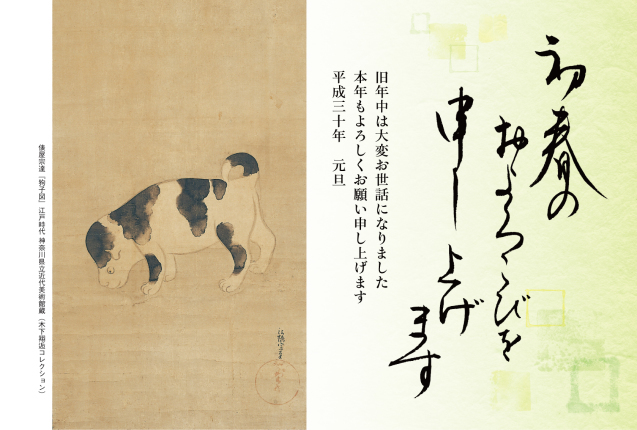 初春の
およろこびを
申し上げ
ます
旧年中は大変お世話になりました
本年もよろしくお願い申し上げます
平成三十年　元旦
俵屋宗達「狗子図」江戸時代 神奈川県立近代美術館蔵(木下翔逅コレクション)